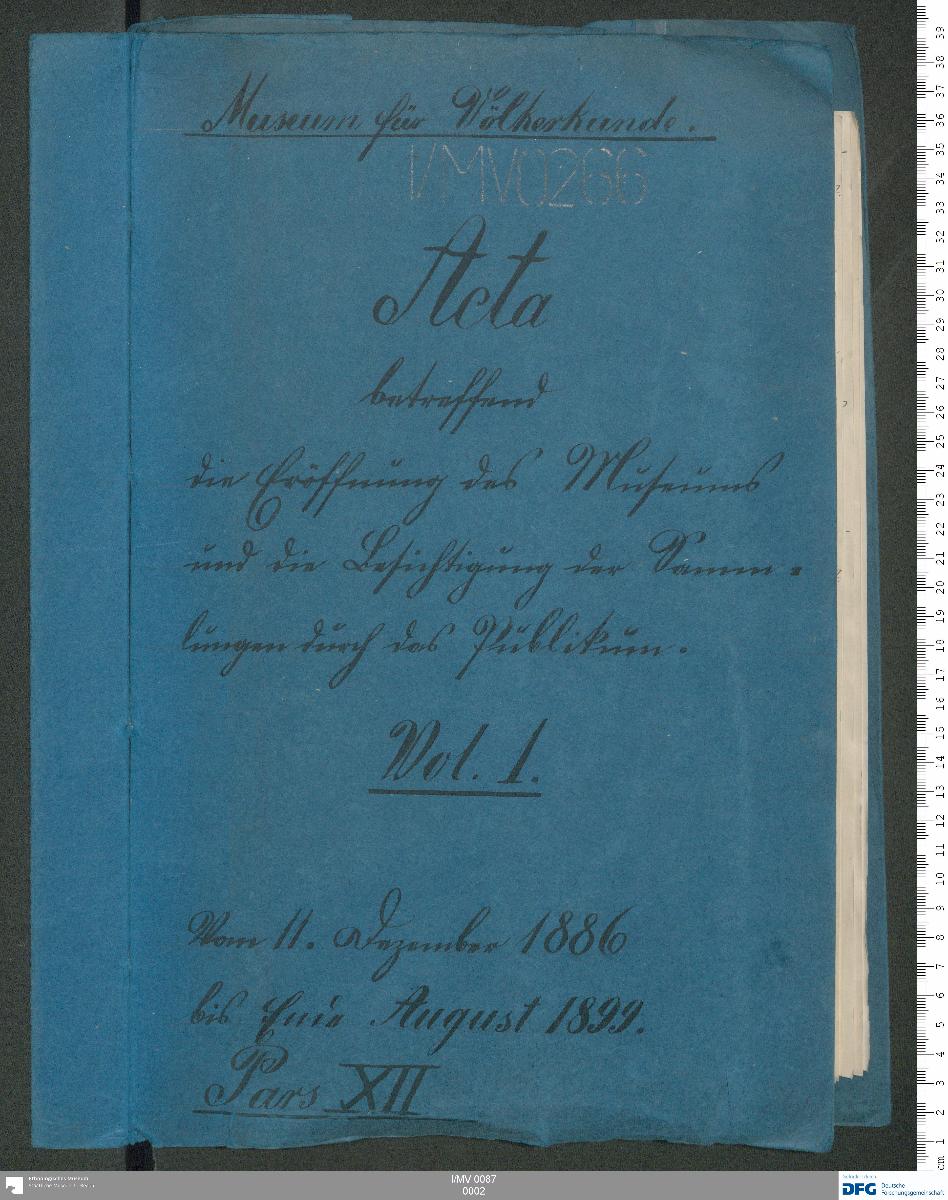 Museum für Völkerkunde.
I/MV0266
Acta
betreffend
die Eröffnung des Museums
und die Besichtigung der Samm-
lungen durch das Publikum.
Vol. 1.
Vom 11. Dezember 1886
bis Ende August 1899.
Pars XII
Ethnologisches Museum
Staatliche Museen zu Berlin
I/MV 0087
0002
DFG Deutsche
Forschungsgemeinschaft
cm 1 2 3 4 5 6 7 8 9 10 11 12 13 14 15 16 17 18 19 20 21 22 23 24 25 26 27 28 29 30 31 32 33 34 35 36 37 38 39